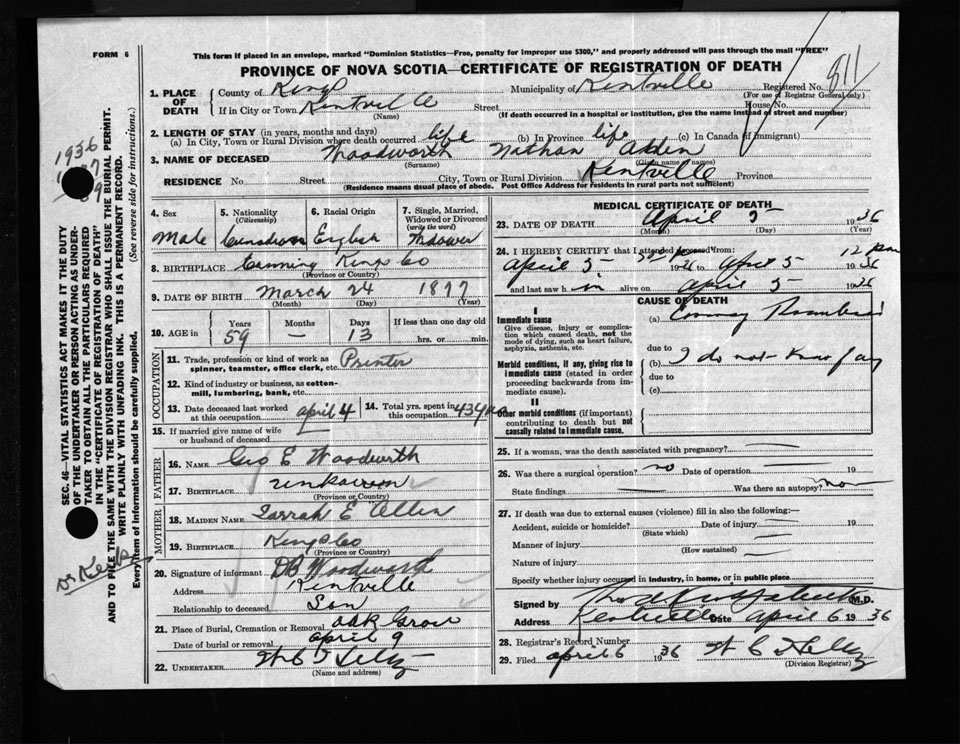 FORM 6
This form if placed in an envelope, marked "Dominion Statistics—Free, penalty for improper use $300," and properly addressed will pass through the mail "FREE"
PROVINCE OF NOVA SCOTIA—CERTIFICATE OF REGISTRATION OF DEATH
811
1. PLACE OF DEATH
County of Kings
Municipality of Kentville
Registered No.
(For use of Registrar General only)
If in City or Town Kentville
(Name)
Street
House No.
(If death occurred in a hospital or institution, give the name instead of street and number)
2. LENGTH OF STAY (in years, months and days)
(a) In City, Town or Rural Division where death occurred life (b) In Province life (c) In Canada (if immigrant)
3. NAME OF DECEASED Woodworth Nathan
(Surname) (Given name or names)
RESIDENCE No. Street City, Town or Rural Division Kentville Province
(Residence means usual place of abode. Post Office Address for residents in rural parts not sufficient)
4. Sex
Male
5. Nationality
(Citizenship)
Canadian
6. Racial Origin
English
7. Single, Married, Widowed or Divorced
(write the word)
Widower
8. BIRTHPLACE Canning Kings Co
(Province or Country)
9. DATE OF BIRTH March 24 1877
(Month) (Day) (Year)
10. AGE in
Years Months Days If less than one day old
59 — 13 hrs. or min.
OCCUPATION
11. Trade, profession or kind of work as spinner, teamster, office clerk, etc. Printer
12. Kind of industry or business, as cotton-mill, lumbering, bank, etc.
13. Date deceased last worked at this occupation April 4
14. Total yrs. spent in this occupation 43
15. If married give name of wife or husband of deceased
FATHER
16. NAME Geo E Woodworth
17. BIRTHPLACE unknown
(Province or Country)
MOTHER
18. MAIDEN NAME Sarrah E
19. BIRTHPLACE Kings Co
(Province or Country)
20. Signature of informant DB Woodworth
Address Kentville
Relationship to deceased Son
21. Place of Burial, Cremation or Removal Oak Grove
Date of burial or removal April 9
22. UNDERTAKER
(Name and address)
MEDICAL CERTIFICATE OF DEATH
23. DATE OF DEATH April 5 1936
(Month) (Day) (Year)
24. I HEREBY CERTIFY that I attended deceased from:
April 5 1936 to April 5 1936
and last saw h im alive on April 5 1936
I
Immediate cause
Give disease, injury or complication which caused death, not the mode of dying, such as heart failure, asphyxia, asthenia, etc.
Morbid conditions, if any, giving rise to immediate cause (stated in order proceeding backwards from immediate cause).
II
Other morbid conditions (if important) contributing to death but not causally related to immediate cause.
CAUSE OF DEATH
(a)
due to
(b) I do not know
due to
(c)
25. If a woman, was the death associated with pregnancy?
26. Was there a surgical operation? no Date of operation 19
State findings Was there an autopsy?
27. If death was due to external causes (violence) fill in also the following:—
Accident, suicide or homicide? Date of injury 19
(State which)
Manner of injury
(How sustained)
Nature of injury
Specify whether injury occurred in industry, in home, or in public place
Signed by M.D.
Address Kentville Date April 6 1936
28. Registrar's Record Number
29. Filed April 6 1936
(Division Registrar)
SEC. 46—VITAL STATISTICS ACT MAKES IT THE DUTY OF THE UNDERTAKER OR PERSON ACTING AS UNDERTAKER TO OBTAIN ALL THE PARTICULARS REQUIRED IN THE "CERTIFICATE OF REGISTRATION OF DEATH" AND TO FILE THE SAME WITH THE DIVISION REGISTRAR WHO SHALL ISSUE THE BURIAL PERMIT.
WRITE PLAINLY WITH UNFADING INK. THIS IS A PERMANENT RECORD.
Every item of information should be carefully supplied. (See reverse side for instructions.)
1936